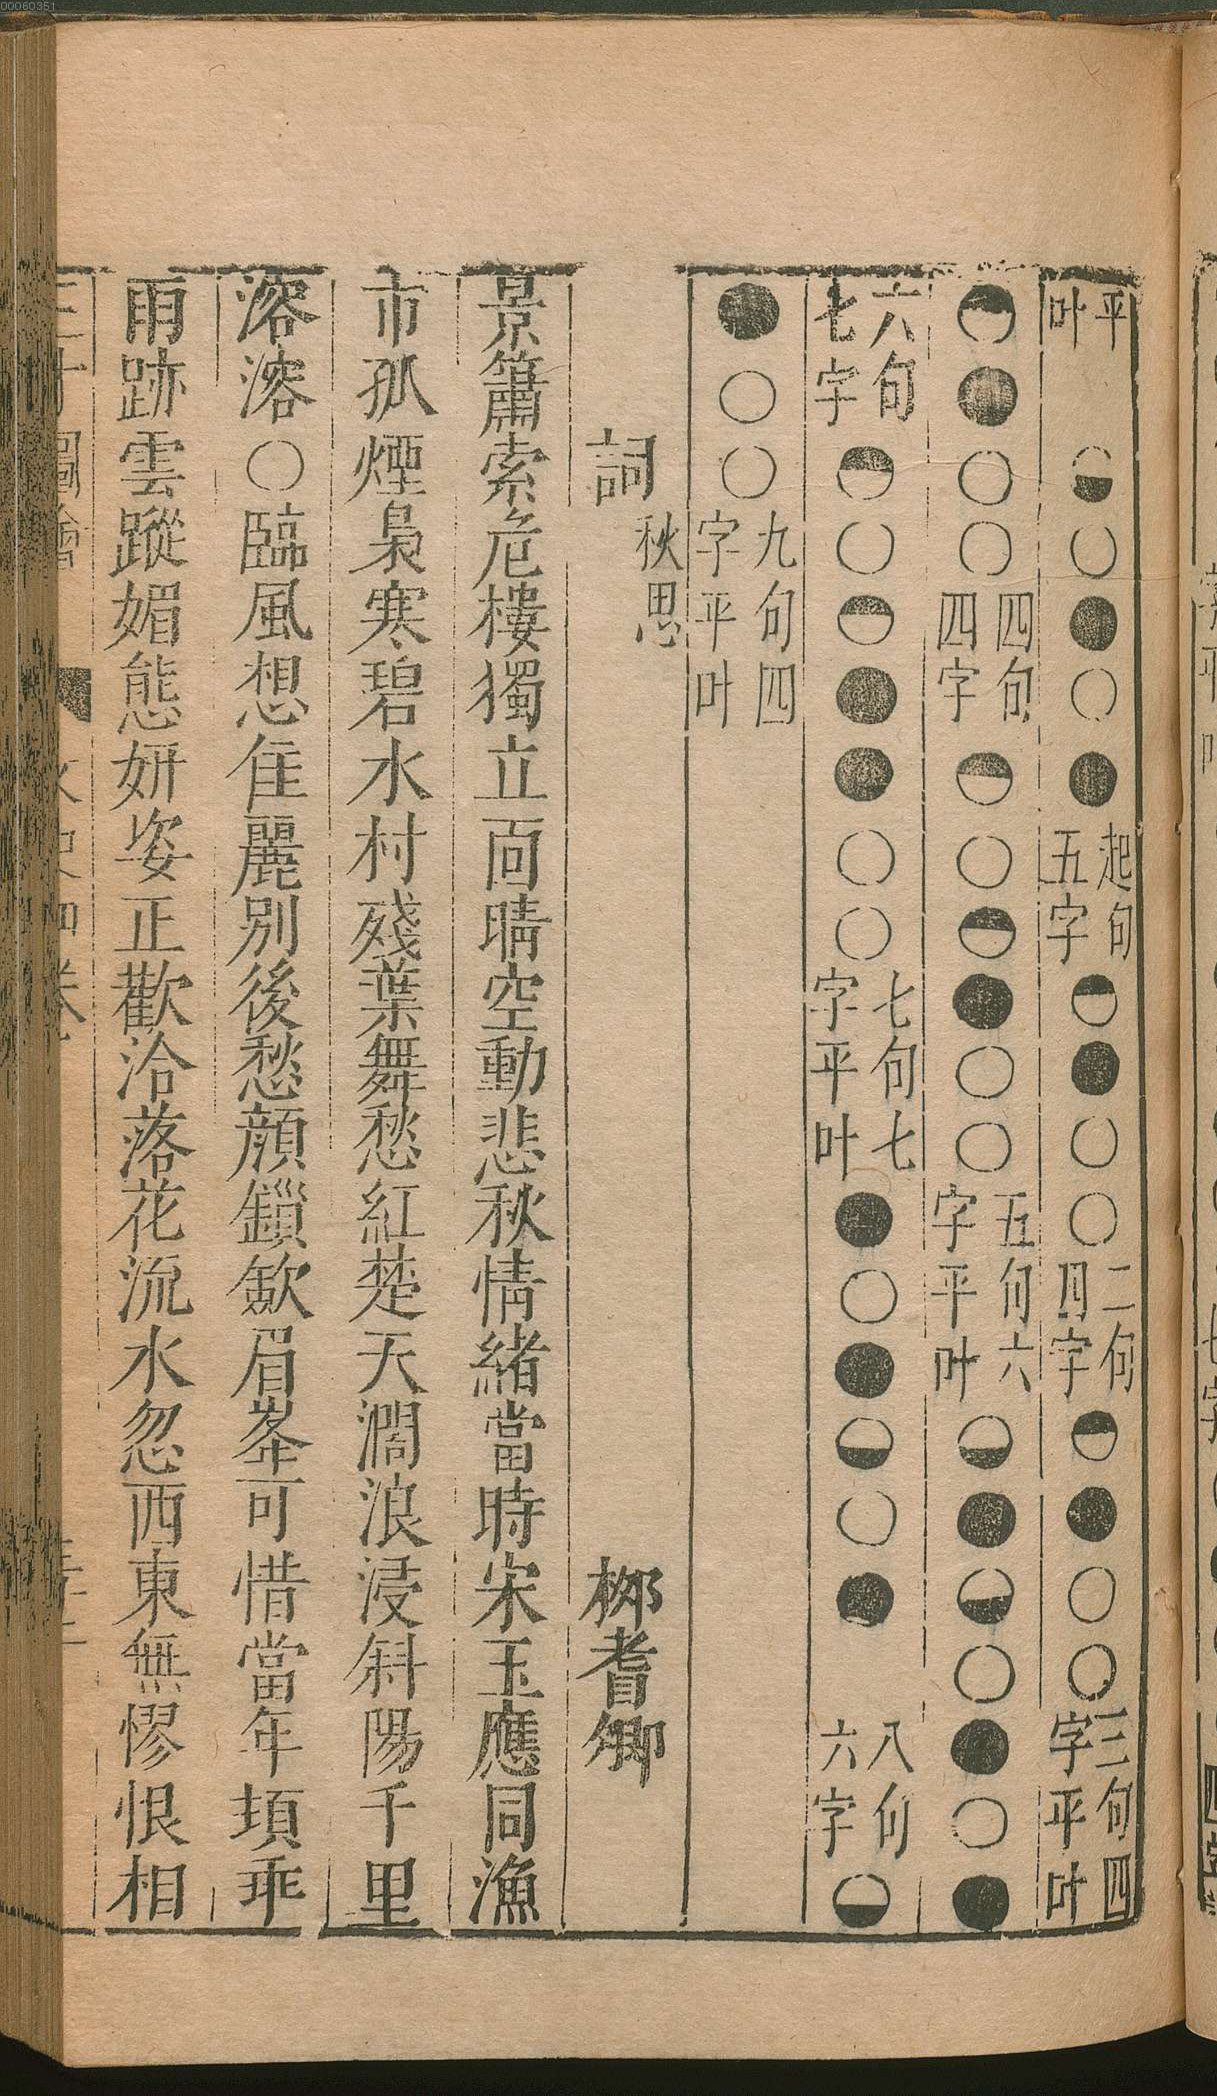 00060351
平叶◒○●○●起句五字◓●○○二句四字◓●○○三句四字平叶
◓●○○四句四字◒○◓●○○五句六字平叶◒●◒○●○●
六句七字◓○◓●●○○七句七字平叶●○●◒○●八句六字◒
●○○九句四字平叶
詞 秋思 桞耆卿
景簫索危樓獨立面晴空動悲秋情緒當時宋玉應同漁
市孤煙裊寒碧水村殘葉舞愁紅楚天濶浪浸斜陽千里
溶溶○臨風想佳麗別後愁顏鎻斂眉峯可惜當年頓乖
雨跡雲蹤媚態妍姿正歡洽落花流水忽西東無憀恨相